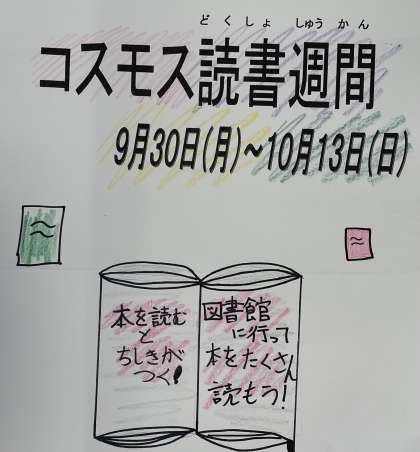 どくしょ しゅうかん
コスモス読書週間
9月30日(月)~10月13日(日)
本を読む
と
ちしきが
つく!
図書館
に行って
本をたくさん
読もう!